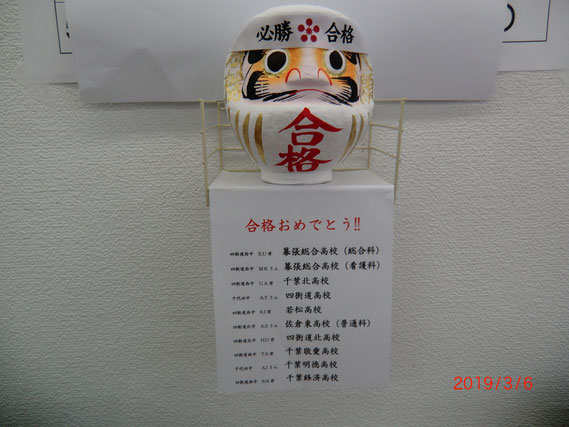 必勝 合格
合格
合格おめでとう!!
四街道西中 E.U君 幕張総合高校（総合科）
四街道西中 M.Kさん 幕張総合高校（看護科）
四街道西中 千葉北高校
千代田中 A.Tさん 四街道高校
四街道西中 若松高校
四街道北中 A.Sさん 佐倉東高校（普通科）
四街道北中 四街道北高校
四街道西中 千葉敬愛高校
千代田中 千葉明徳高校
四街道西中 千葉経済高校
2019/3/6